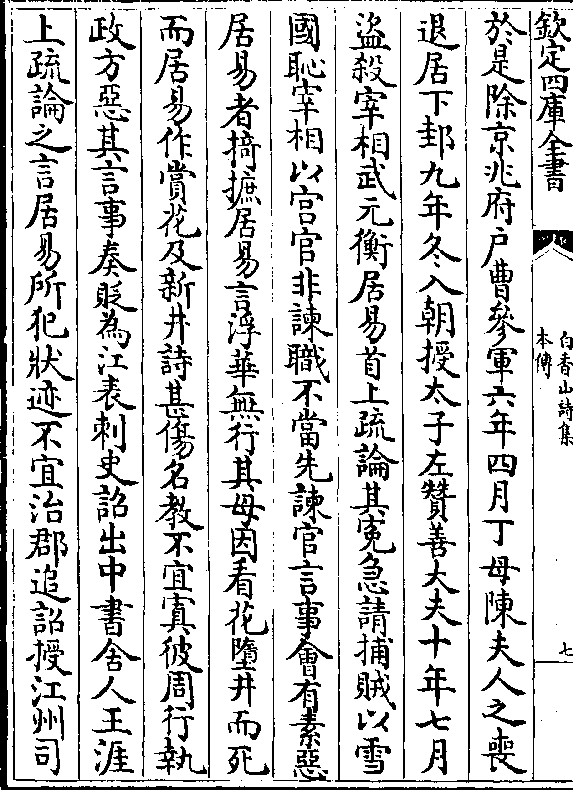 欽定四庫全書
白香山詩集
本傳
七
於是除京兆府户曹參軍六年四月丁母陳夫人之喪
退居下邽九年冬入朝授太子左贊善大夫十年七月
盜殺宰相武元衡居易首上疏論其寃急請捕賊以雪
國恥宰相以宫官非諫職不當先諫官言事會有素惡
居易者掎摭居易言浮華無行其母因看花墮井而死
而居易作賞花及新井詩甚傷名教不宜寘彼周行執
政方惡其言事奏貶為江表刺史詔出中書舍人王涯
上疏論之言居易所犯狀迹不宜治郡追詔授江州司